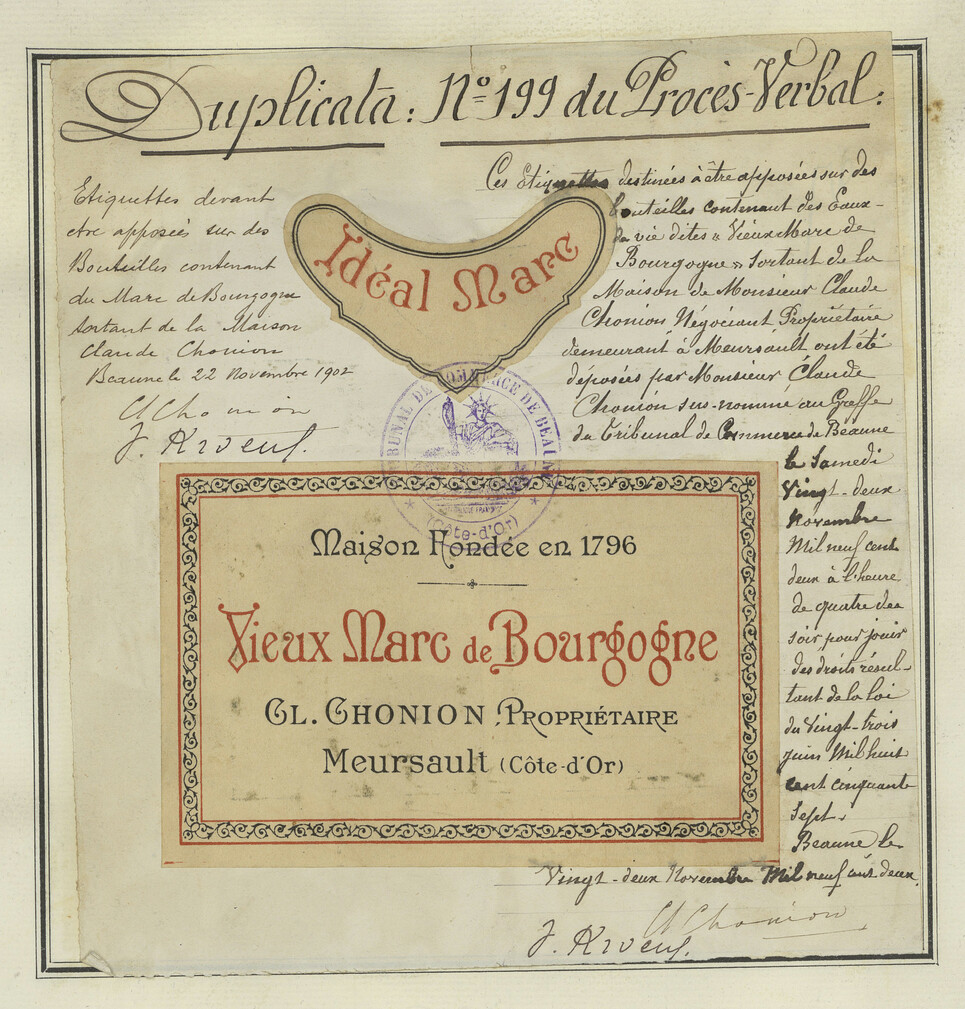 Duplicata : Nº 199 du Procès-Verbal :
Etiquettes devant
être apposées sur des
Bouteilles contenant
du Marc de Bourgogne
sortant de la Maison
Claude Chonion
Beaune le 22 Novembre 1902
Cl Chonion
Idéal Marc
Ces Etiquettes destinées à être apposées sur des
bouteilles contenant des Eaux-
de vie dites « Vieux Marc de
Bourgogne » sortant de la
Maison de Monsieur Claude
Chonion Négociant Propriétaire
demeurant à Meursault ont été
déposées par Monsieur Claude
Chonion sus-nommé au Greffe
du Tribunal de Commerce de Beaune
le Samedi
Vingt-deux
Novembre
Mil neuf cent
deux à l'heure
de quatre du
soir pour jouir
des droits résul-
tant de la loi
du Vingt-trois
juin Mil huit
cent cinquante
sept.
Beaune le
Vingt-deux Novembre Mil neuf cent deux.
Cl Chonion
TRIBUNAL DE COMMERCE DE BEAUNE
(Côte-d'Or)
Maison Fondée en 1796
Vieux Marc de Bourgogne
CL. CHONION, PROPRIÉTAIRE
Meursault (Côte-d'Or)